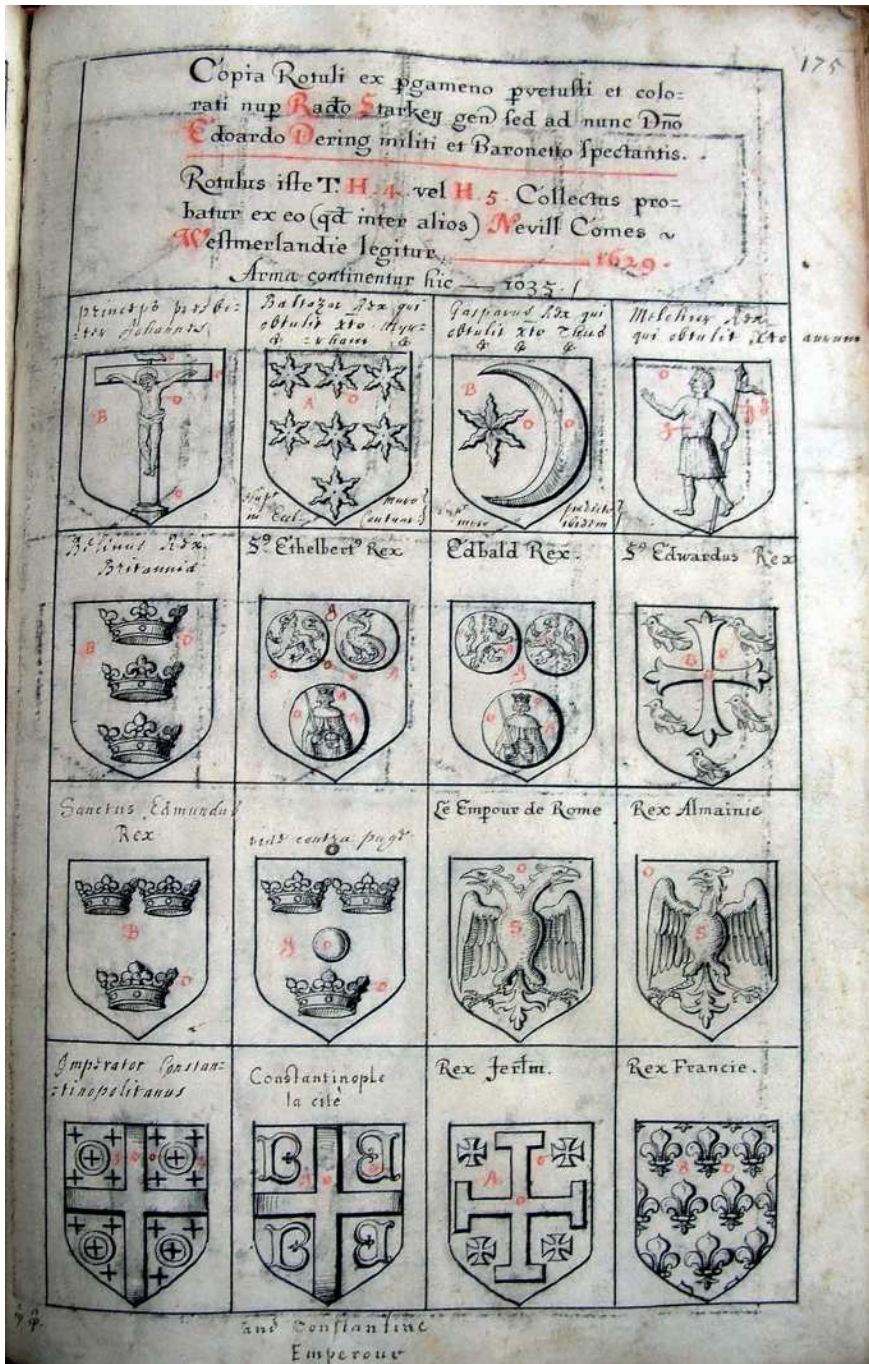 175
Copia Rotuli ex pgameno pvetusti et colo=
rati nup Rado Starkey gen) sed ad nunc Dno
Edoardo Dering militi et Baronetto spectantis.
Rotulus iste T. H. 4. vel H. 5. Collectus pro=
batur ex eo (qd inter alios) Nevill Comes ~
Westmerlandie legitur. 1629.
Arma continentur hic — 1035.
princeps presbi=
=ter Johannes
Baltazar Rex qui
obtulit xto Myr=
=rham
Gasparus Rex qui
obtulit xto Thus
Melchior Rex
qui obtulit Xto aurum
B
O
O
O
O
A
O
B
O
O
O
Belinus Rex
Britannie
S9 Ethelbert9 Rex
Edbald Rex.
S9 Edwardus Rex
B
O
B
O
Sanctus Edmundus
Rex
vide contra page
Le Empour de Rome
Rex Almainie
B
O
g
O
O
O
S
O
S
Imperator Constan=
=tinopolitanus
Constantinople
la cite
Rex Jerlm.
Rex Francie.
A
O
O
B
O
and Constantine
Emperour